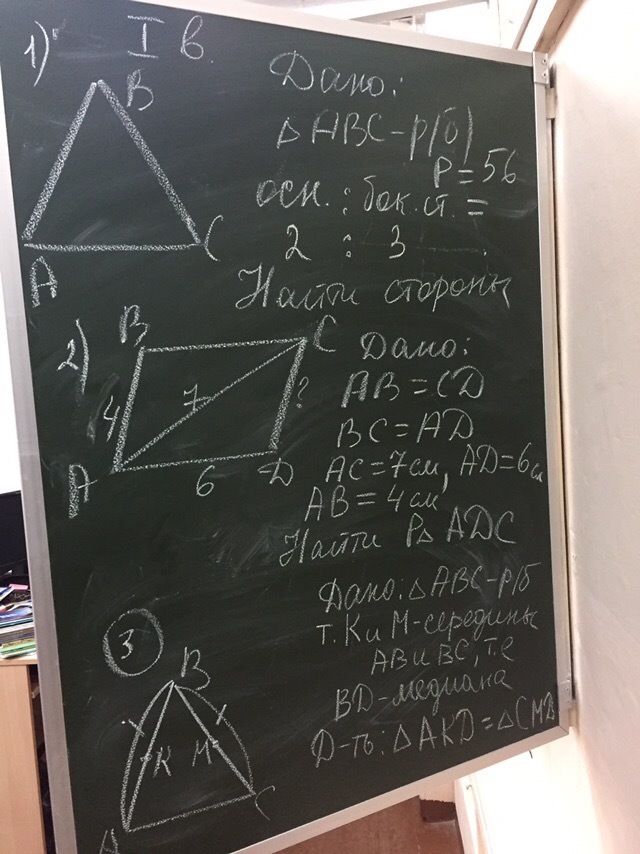 I в.
1)
B
A
C
Дано:
△ABC-р/б)
P=56
осн. : бок.ст. =
2 : 3
Найти стороны
2)
B
C
4
7
?
A
6
D
Дано:
AB=CD
BC=AD
AC=7см, AD=6см
AB=4см
Найти P△ADC
3
B
K
M
A
C
Дано: △ABC-р/б
т.K и M-середины
AB и BC, т.е
BD-медиана
Д-ть: △AKD=△CMD